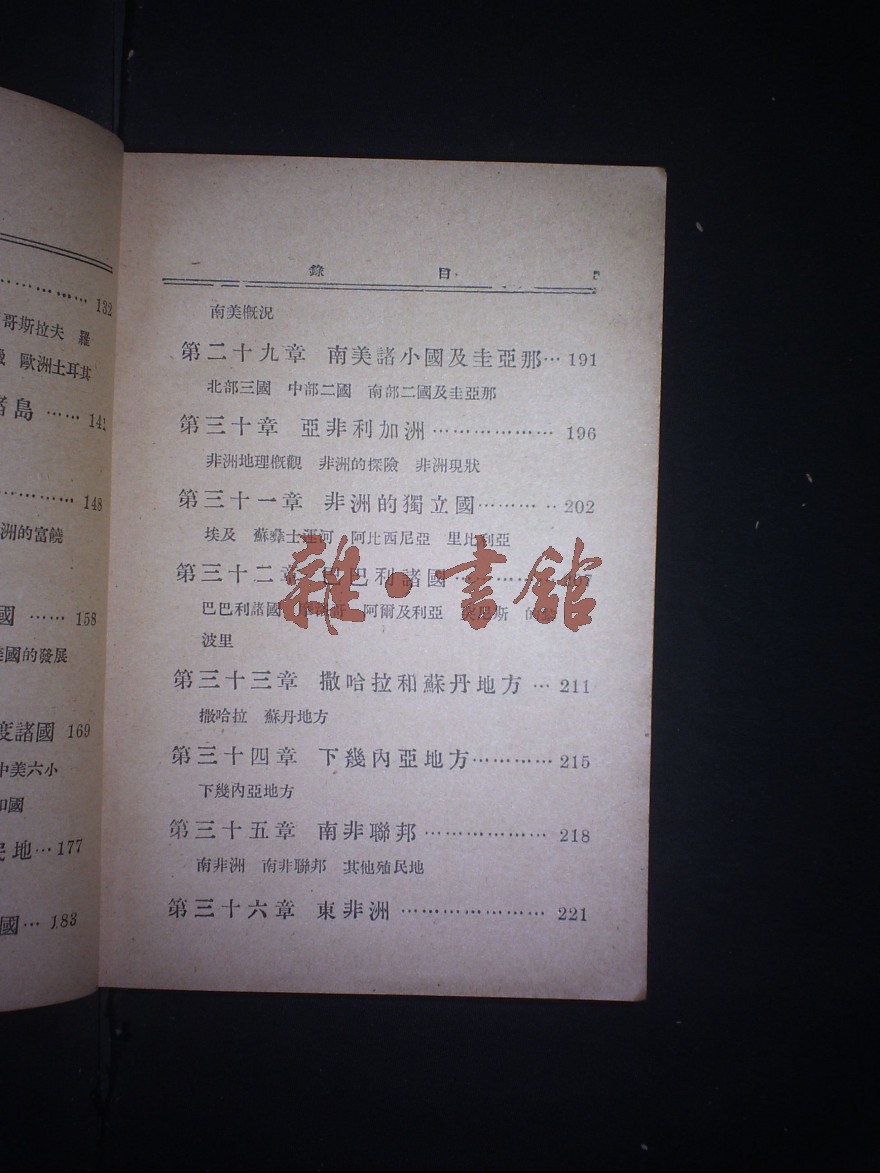 132
哥斯拉夫 羅
歐洲土耳其
島……141
148
洲的富饒
國……158
國的發展
度諸國 169
中美六小
和國
民地…177
國…183
錄 目
南美概況
第二十九章 南美諸小國及圭亞那…191
北部三國 中部二國 南部二國及圭亞那
第三十章 亞非利加洲………………196
非洲地理概觀 非洲的探險 非洲現狀
第三十一章 非洲的獨立國………‥202
埃及 蘇彝士運河 阿比西尼亞 里比利亞
第三十二章 巴巴利諸國……………207
巴巴利諸國 阿爾及利亞 突尼斯 的
波里
第三十三章 撒哈拉和蘇丹地方…211
撒哈拉 蘇丹地方
第三十四章 下幾內亞地方…………215
下幾內亞地方
第三十五章 南非聯邦………………218
南非洲 南非聯邦 其他殖民地
第三十六章 東非洲…………………221
雜·書館